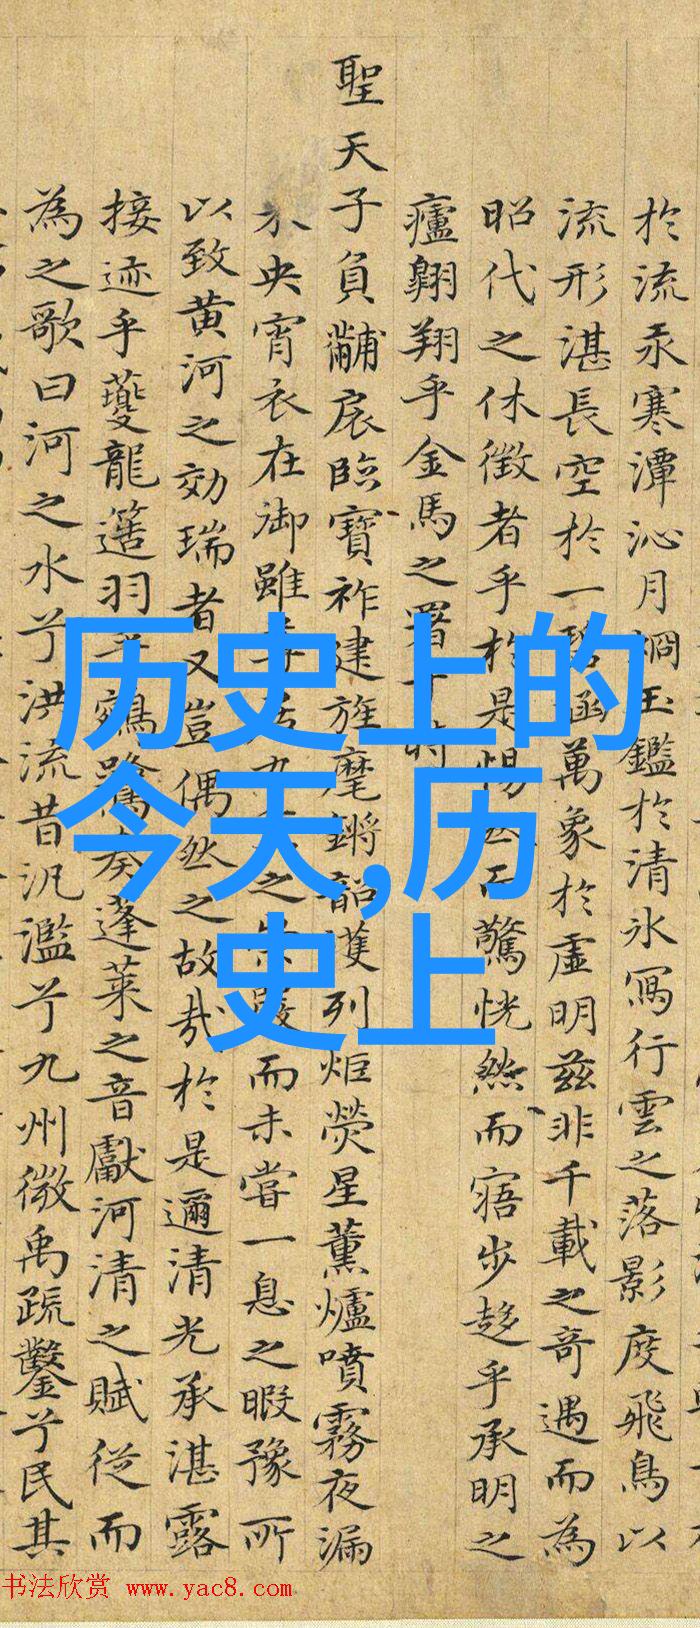 於流汞寒潭沁月烱玉鑑於清氷寫行雲之落影度飛鳥以
流形湛長空於一碧涵萬象於虛明茲非千載之奇遇而為
昭代之休徵者乎於是惕然而驚恍然而寤步趍乎承明之
廬翱翔乎金馬之署于時
聖天子負黼扆臨寶祚建旌麾鏘韶濩列炬熒星薰爐噴霧夜漏
未央宵衣在御雖之而未嘗一息之暇豫所
以致黄河之効瑞者又豈偶然之故哉於是邇清光承湛露
接迹乎夔龍簉羽乎鵷鷺奏蓬萊之音獻河清之賦從而
為之歌曰河之水兮洪流昔汎濫兮九州微禹疏鑿兮民其
历史上的
今天,历
史上
书法欣赏 www.yac8.com